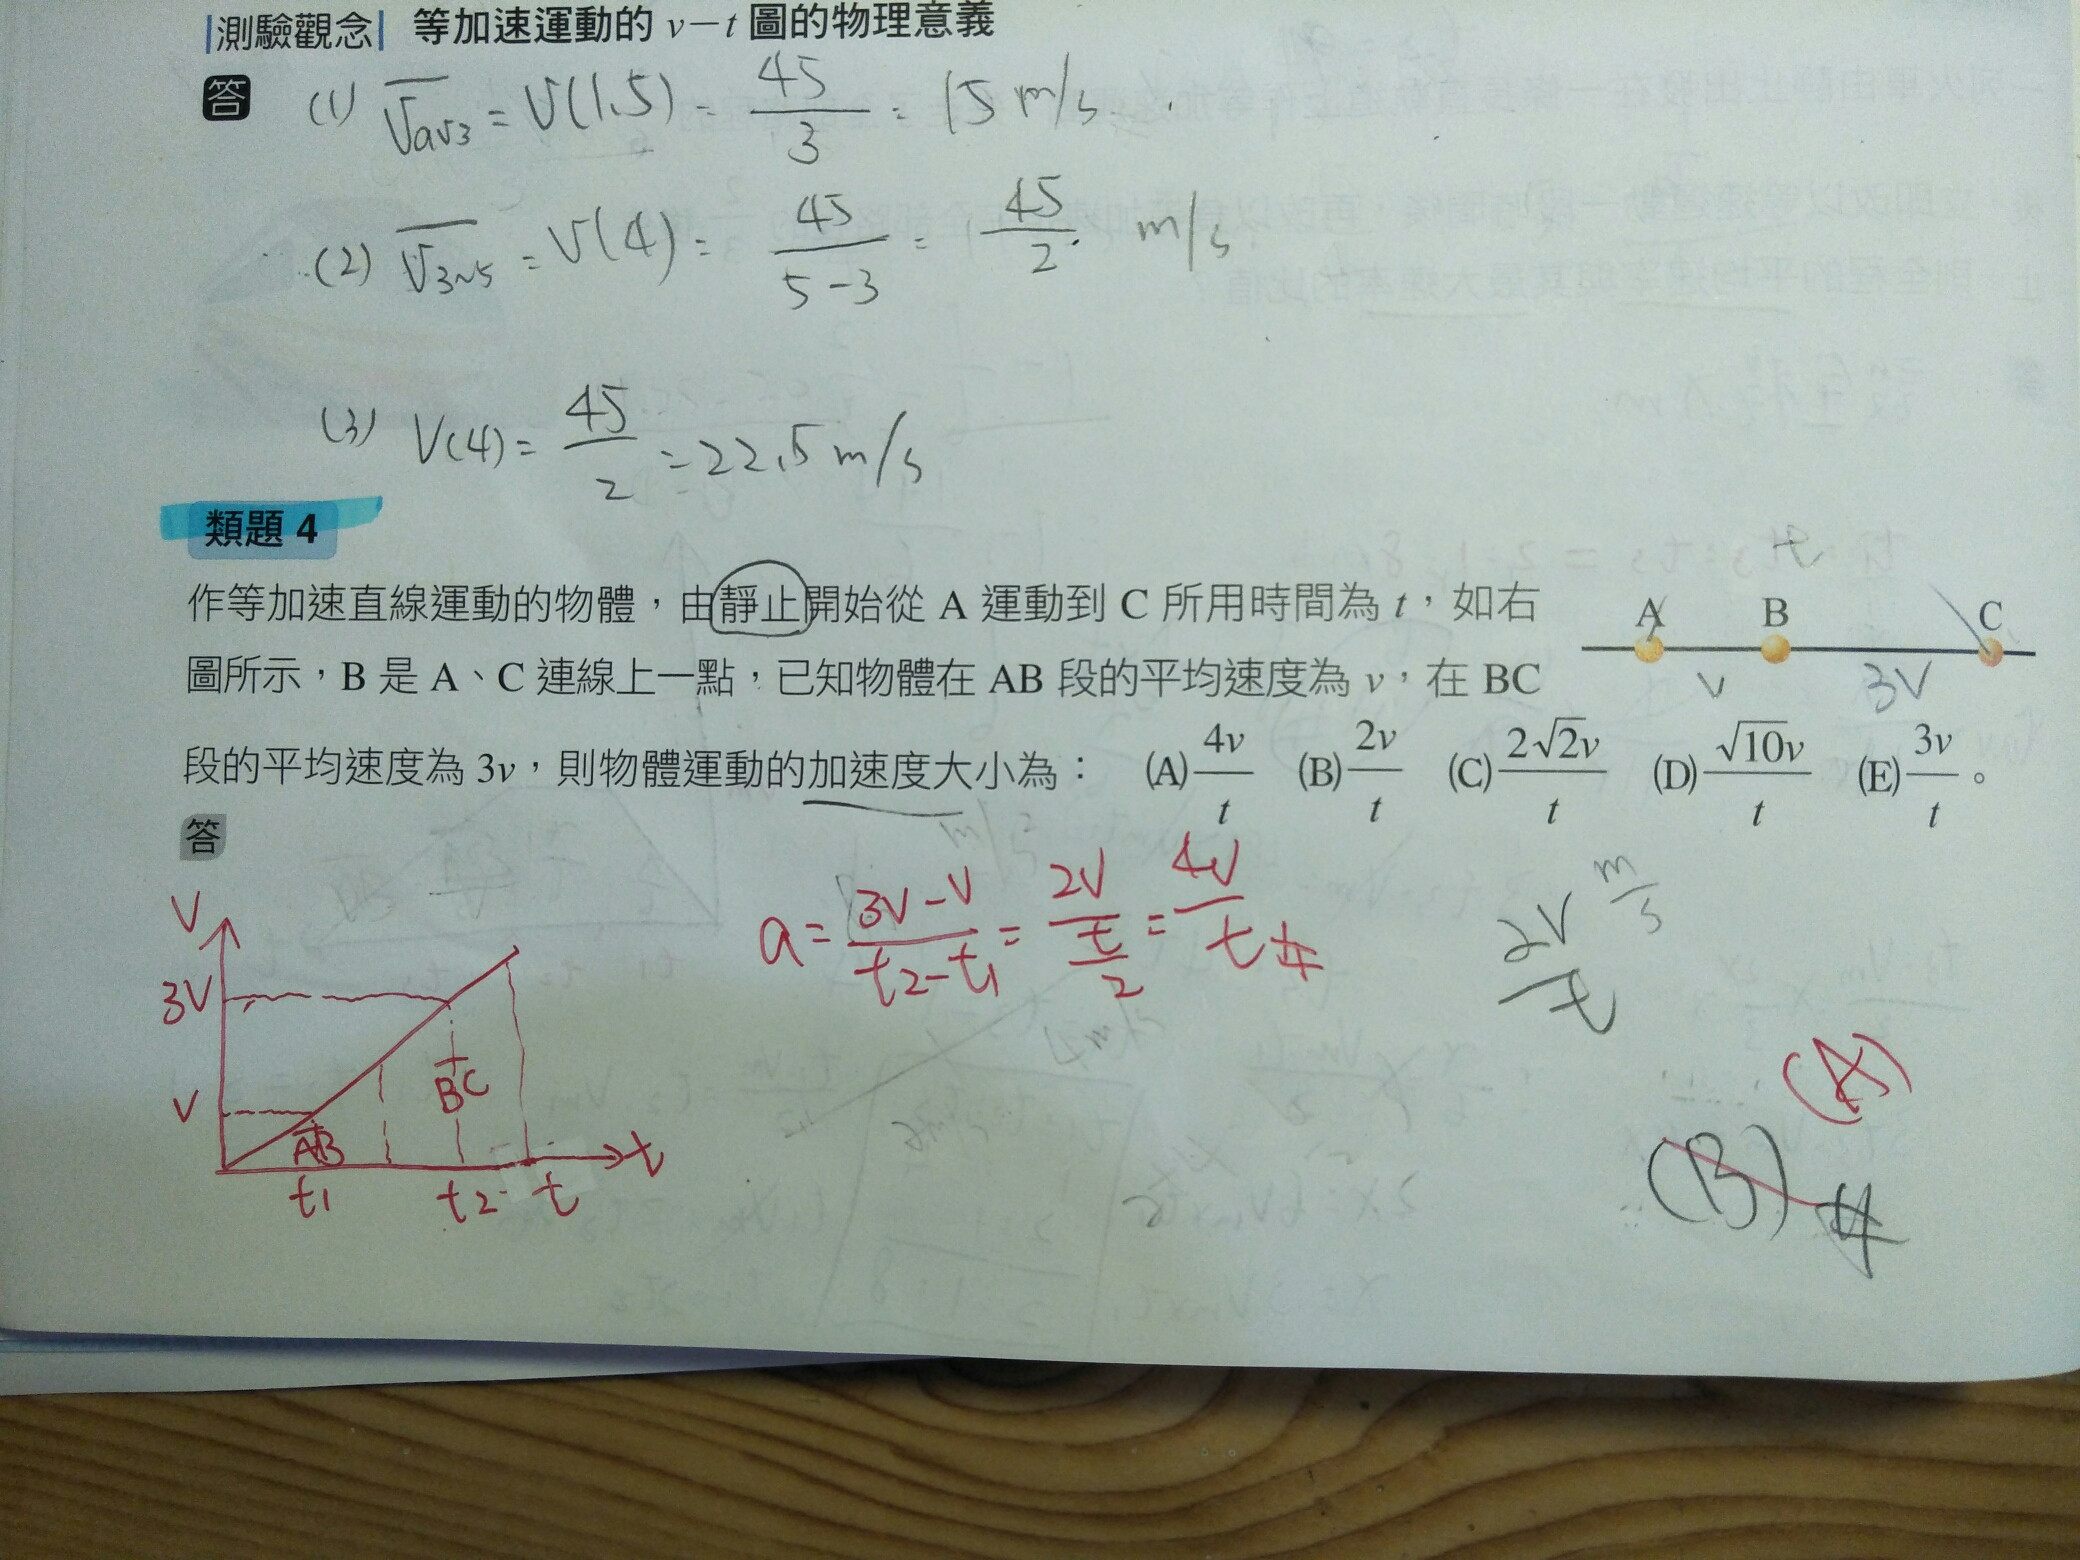 |測驗觀念| 等加速運動的 v－t 圖的物理意義
答 (1) V̅av3 = V(1.5) = 45/3 = 15 m/s
(2) V̅3~5 = V(4) = 45/(5-3) = 45/2 m/s
(3) V(4) = 45/2 = 22.5 m/s
類題 4
作等加速直線運動的物體，由靜止開始從 A 運動到 C 所用時間為 t，如右
圖所示，B 是 A、C 連線上一點，已知物體在 AB 段的平均速度為 v，在 BC
段的平均速度為 3v，則物體運動的加速度大小為： (A) 4v/t (B) 2v/t (C) 2√2v/t (D) √10v/t (E) 3v/t 。
t
A B C
V 3V
答
a = (3V-V)/(t2-t1) = 2V/(t/2) = 4V/t #
2V/t m/s
V
3V
V
AB
BC
t1 t2 t t
(A)
(B) #